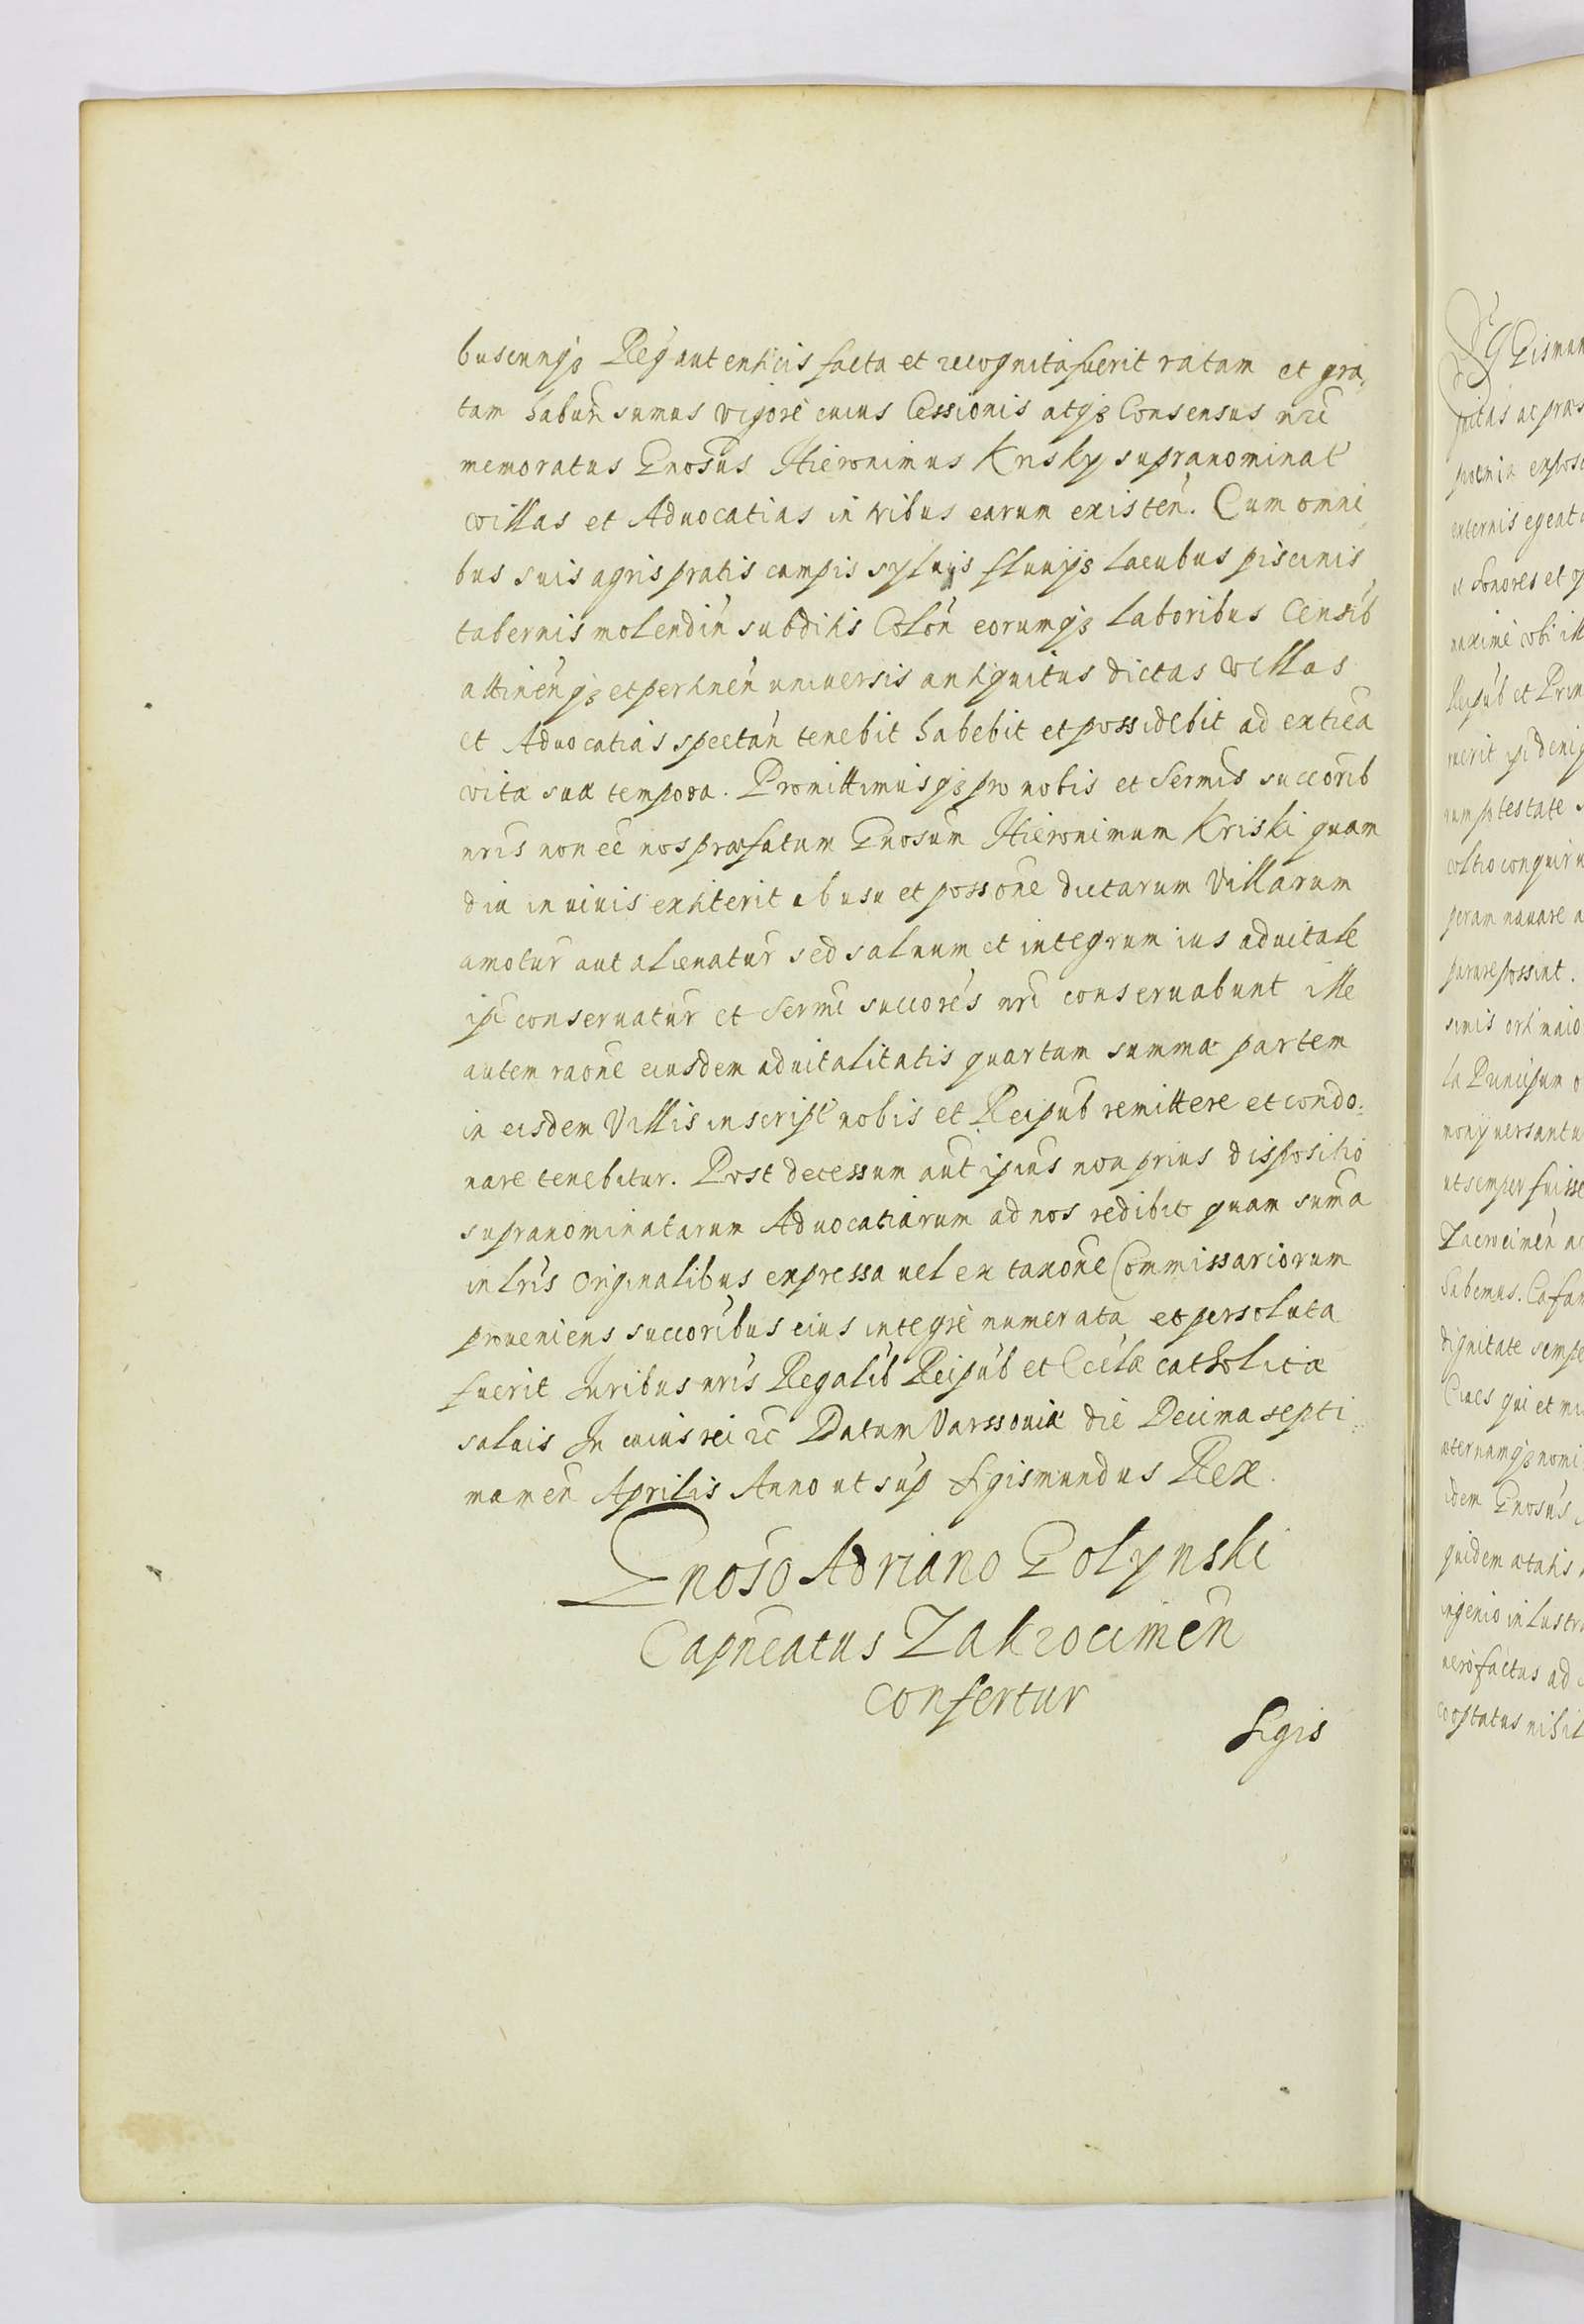 buscunqʒ Reg autenticis facta et recognita fuerit ratam et gra,
tam haburi sumus vigore cuius Cessionis atqʒ Consensus nri
memoratus Gnosus Hieronimus Krisky supranominat
villas et Aduocatias in tribus earum existen. Cum omni
bus suis agris pratis campis syluis fluuijs lacubus piscinis
tabernis molendin subditis Colon eorumqʒ laboribus Censib
attinenqʒ et pertinen uniuersis antiquitus dictas villas
et Aduocatias spectan tenebit habebit et possidebit ad extrea
vitæ suæ tempora. Promittimusqʒ pro nobis et Sermis succorib
nris non eē nos præfatum Gnosum Hieronimum Kriski quam
diu in uiuis extiterit ab usu et possone dictarum Villarum
amotur aut alienatur sed saluum et integrum ius aduitale
ipi conseruatur et Sermi succores nri conseruabunt ille
autem raone eiusdem aduitalitatis quartam summæ partem
in eisdem Villis inscript nobis et Reipub remittere et condo:
nare tenebitur. Post decessum aut ipius non prius dispositio
supranominatarum Aduocatiarum ad nos redibit quam suma
in lris Originalibus expressa uel ex taxone Commissariorum
proueniens succoribus eius integre numerata et persoluta
fuerit Iuribus nris Regalib Reipub et Ecclæ catholicæ
saluis In cuius rei &c Datum Varssouiæ die Decima septi:
ma men Aprilis Anno ut sup Sigismundus Rex.
Gnoso Adriano Golynski
Capneatus Zakrocimen
confertur
Sigis